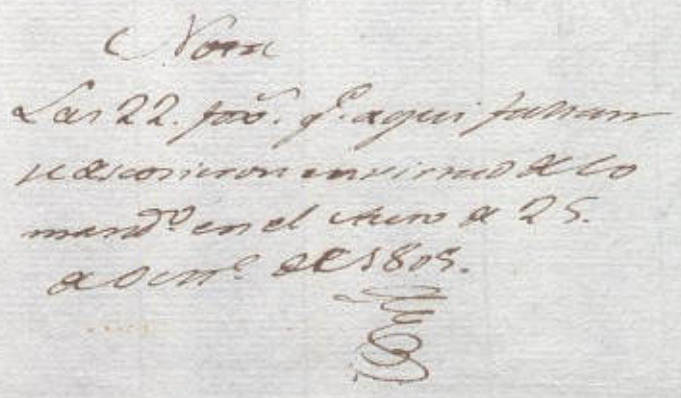 Nota
Las 22. fox.ˢ q.ᵉ aqui faltan
se descosieron en virtud de lo
mand.º en el Auto de 25.
de Oct.ᵉ de 1805.